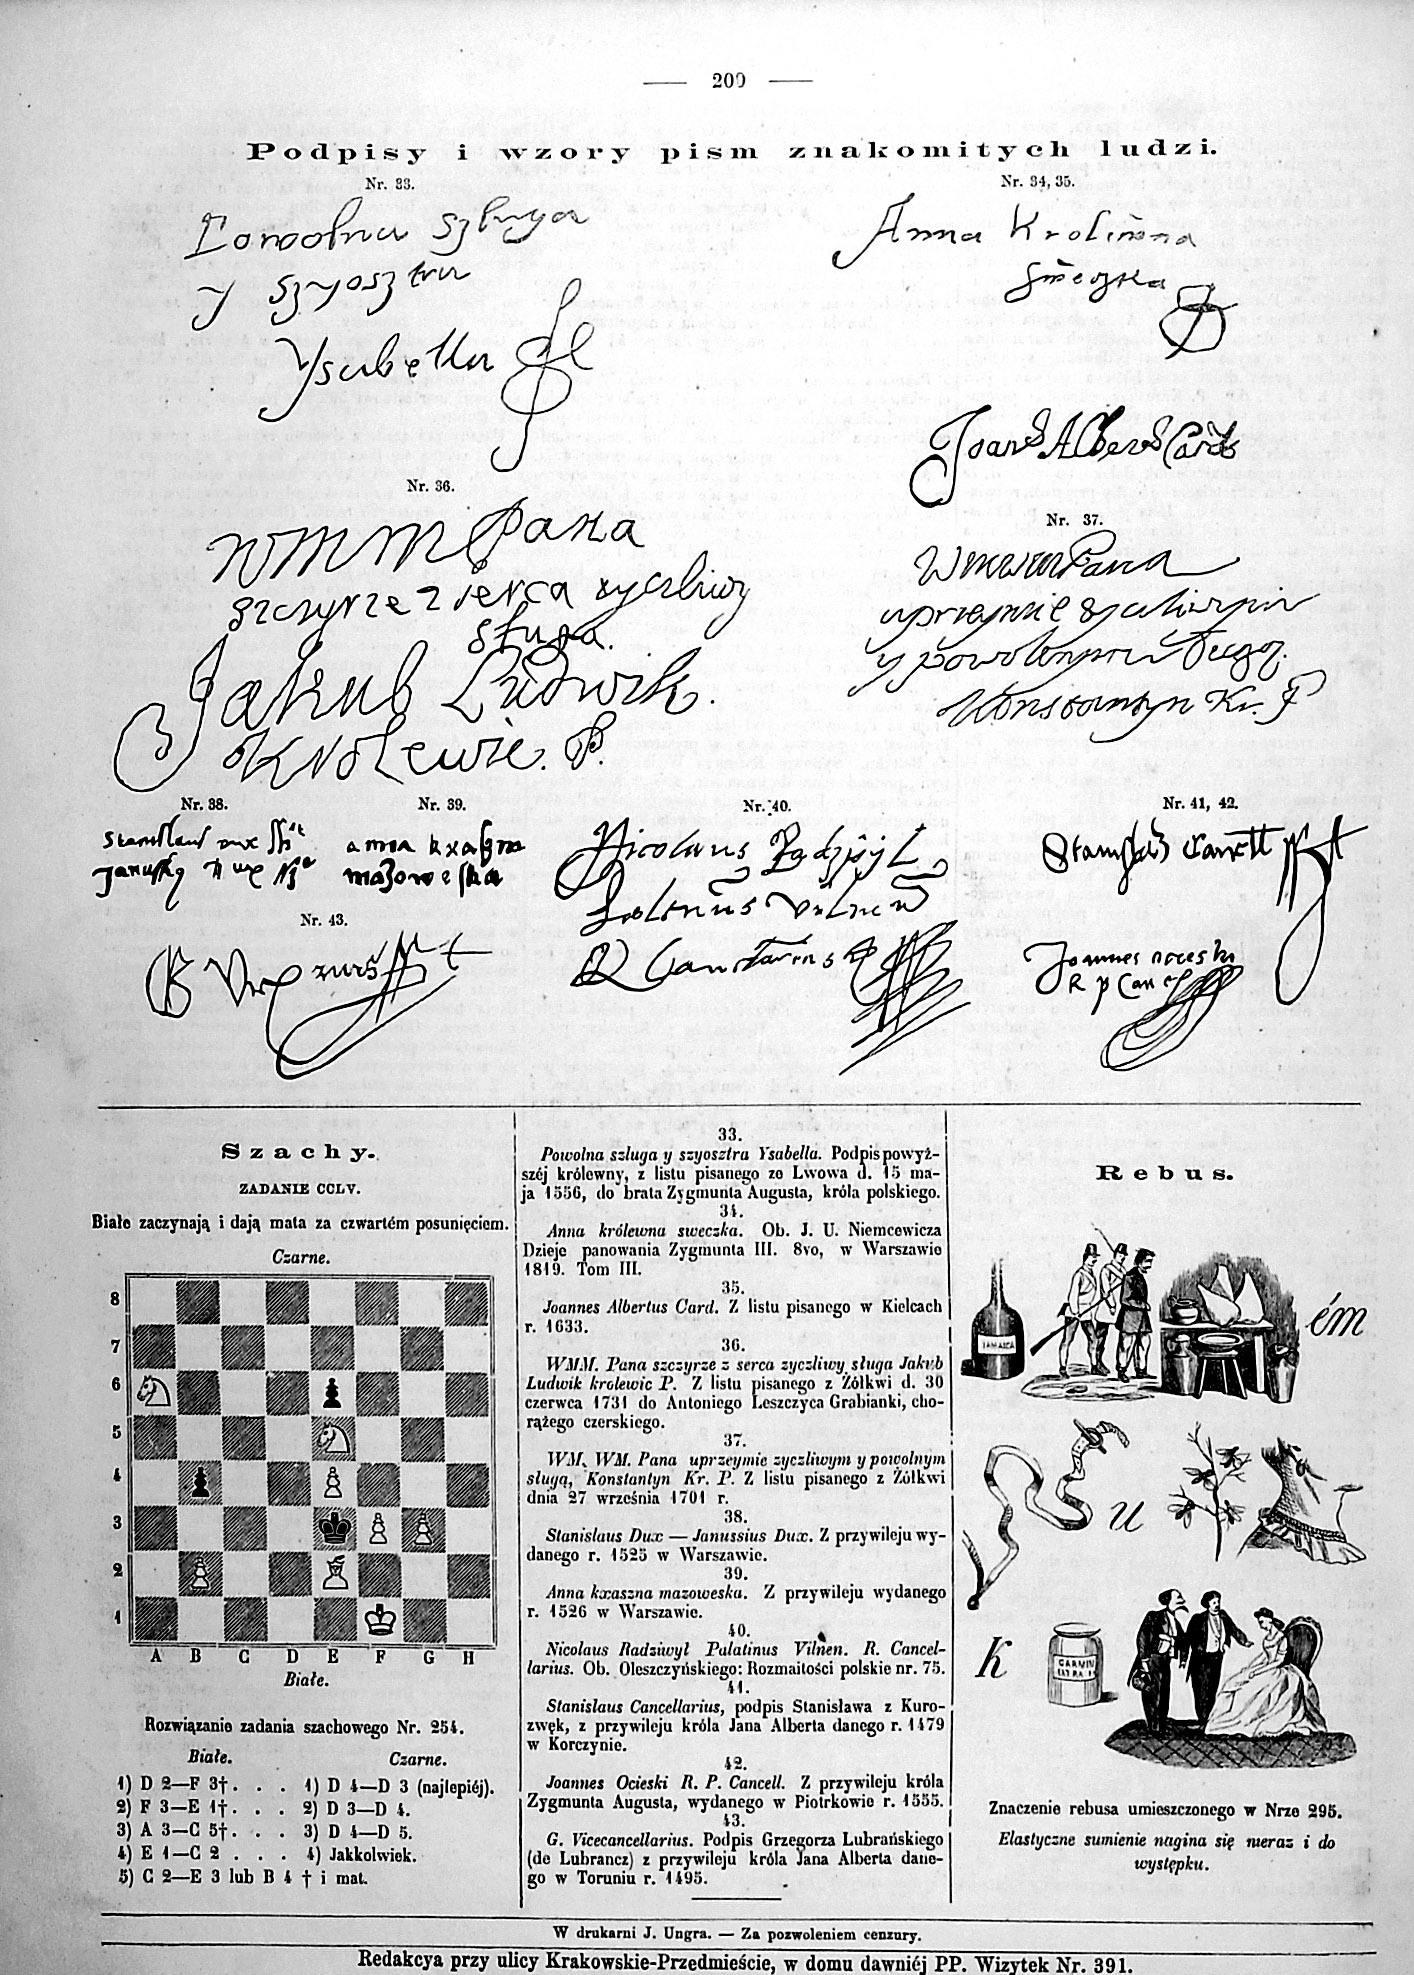 — 209 —
Podpisy i wzory pism znakomitych ludzi.
Nr. 33.
Nr. 34, 35.
Powolna szluga
y szyosztra
Ysabella
Anna Krolewna
Sweczka
Joannes Albertus Card
Nr. 36.
WMM Pana
szczyrze z serca zyczliwy
sługa.
Jakub Ludwik.
Krolewic. P.
Nr. 37.
WMWM Pana
uprzeymie zyczliwym
y powolnym sługą.
Konstantyn Kr. P
Nr. 38.
Nr. 39.
Nr. 40.
Nr. 41, 42.
anna kxaszna
mazoweska
Nicolaus
Nr. 43.
Szachy.
ZADANIE CCLV.
Białe zaczynają i dają mata za czwartém posunięciem.
Czarne.
8
7
6
5
4
3
2
1
A B C D E F G H
Białe.
Rozwiązanie zadania szachowego Nr. 254.
Białe. Czarne.
1) D 2—F 3†. . . 1) D 4—D 3 (najlepiéj).
2) F 3—E 1†. . . 2) D 3—D 4.
3) A 3—C 5†. . . 3) D 4—D 5.
4) E 1—C 2 . . . 4) Jakkolwiek.
5) C 2—E 3 lub B 4 † i mat.
33.
Powolna szluga y szyosztra Ysabella. Podpis powyż-
széj królewny, z listu pisanego ze Lwowa d. 15 ma-
ja 1556, do brata Zygmunta Augusta, króla polskiego.
34.
Anna królewna sweczka. Ob. J. U. Niemcewicza
Dzieje panowania Zygmunta III. 8vo, w Warszawie
1819. Tom III.
35.
Joannes Albertus Card. Z listu pisanego w Kielcach
r. 1633.
36.
WMM. Pana szczyrze z serca zyczliwy sługa Jakub
Ludwik krolewic P. Z listu pisanego z Żółkwi d. 30
czerwca 1731 do Antoniego Leszczyca Grabianki, cho-
rążego czerskiego.
37.
WM. WM. Pana uprzeymie zyczliwym y powolnym
sługą, Konstantyn Kr. P. Z listu pisanego z Żółkwi
dnia 27 września 1701 r.
38.
Stanislaus Dux — Janussius Dux. Z przywileju wy-
danego r. 1525 w Warszawie.
39.
Anna kxaszna mazoweska. Z przywileju wydanego
r. 1526 w Warszawie.
40.
Nicolaus Radziwył Palatinus Vilnen. R. Cancel-
larius. Ob. Oleszczyńskiego: Rozmaitości polskie nr. 75.
41.
Stanislaus Cancellarius, podpis Stanisława z Kuro-
zwęk, z przywileju króla Jana Alberta danego r. 1479
w Korczynie.
42.
Joannes Ocieski R. P. Cancell. Z przywileju króla
Zygmunta Augusta, wydanego w Piotrkowie r. 1555.
43.
G. Vicecancellarius. Podpis Grzegorza Lubrańskiego
(de Lubrancz) z przywileju króla Jana Alberta dane-
go w Toruniu r. 1495.
Rebus.
JAMAICA
ém
u
k
GARMIN
Znaczenie rebusa umieszczonego w Nrze 295.
Elastyczne sumienie nagina się nieraz i do
występku.
W drukarni J. Ungra. — Za pozwoleniem cenzury.
Redakcya przy ulicy Krakowskie-Przedmieście, w domu dawniéj PP. Wizytek Nr. 391.